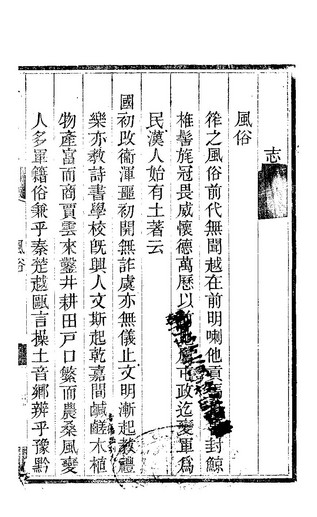 志
風俗
徃之風俗前代無聞越在前明喇他
封鯨
椎髻旄冠畏威懷德萬歷以
市政迄變軍爲
民漢人始有土著云
國初改衞渾噩初開無詐虞亦無儀止文明漸起教禮
樂亦教詩書學校旣興人文斯起乾嘉間鹹鹺木植
物產富而商賈雲來鑿井耕田戸口繁而農桑風變
人多單籍俗兼乎秦楚越甌言操土音鄉辨乎豫黔
風俗